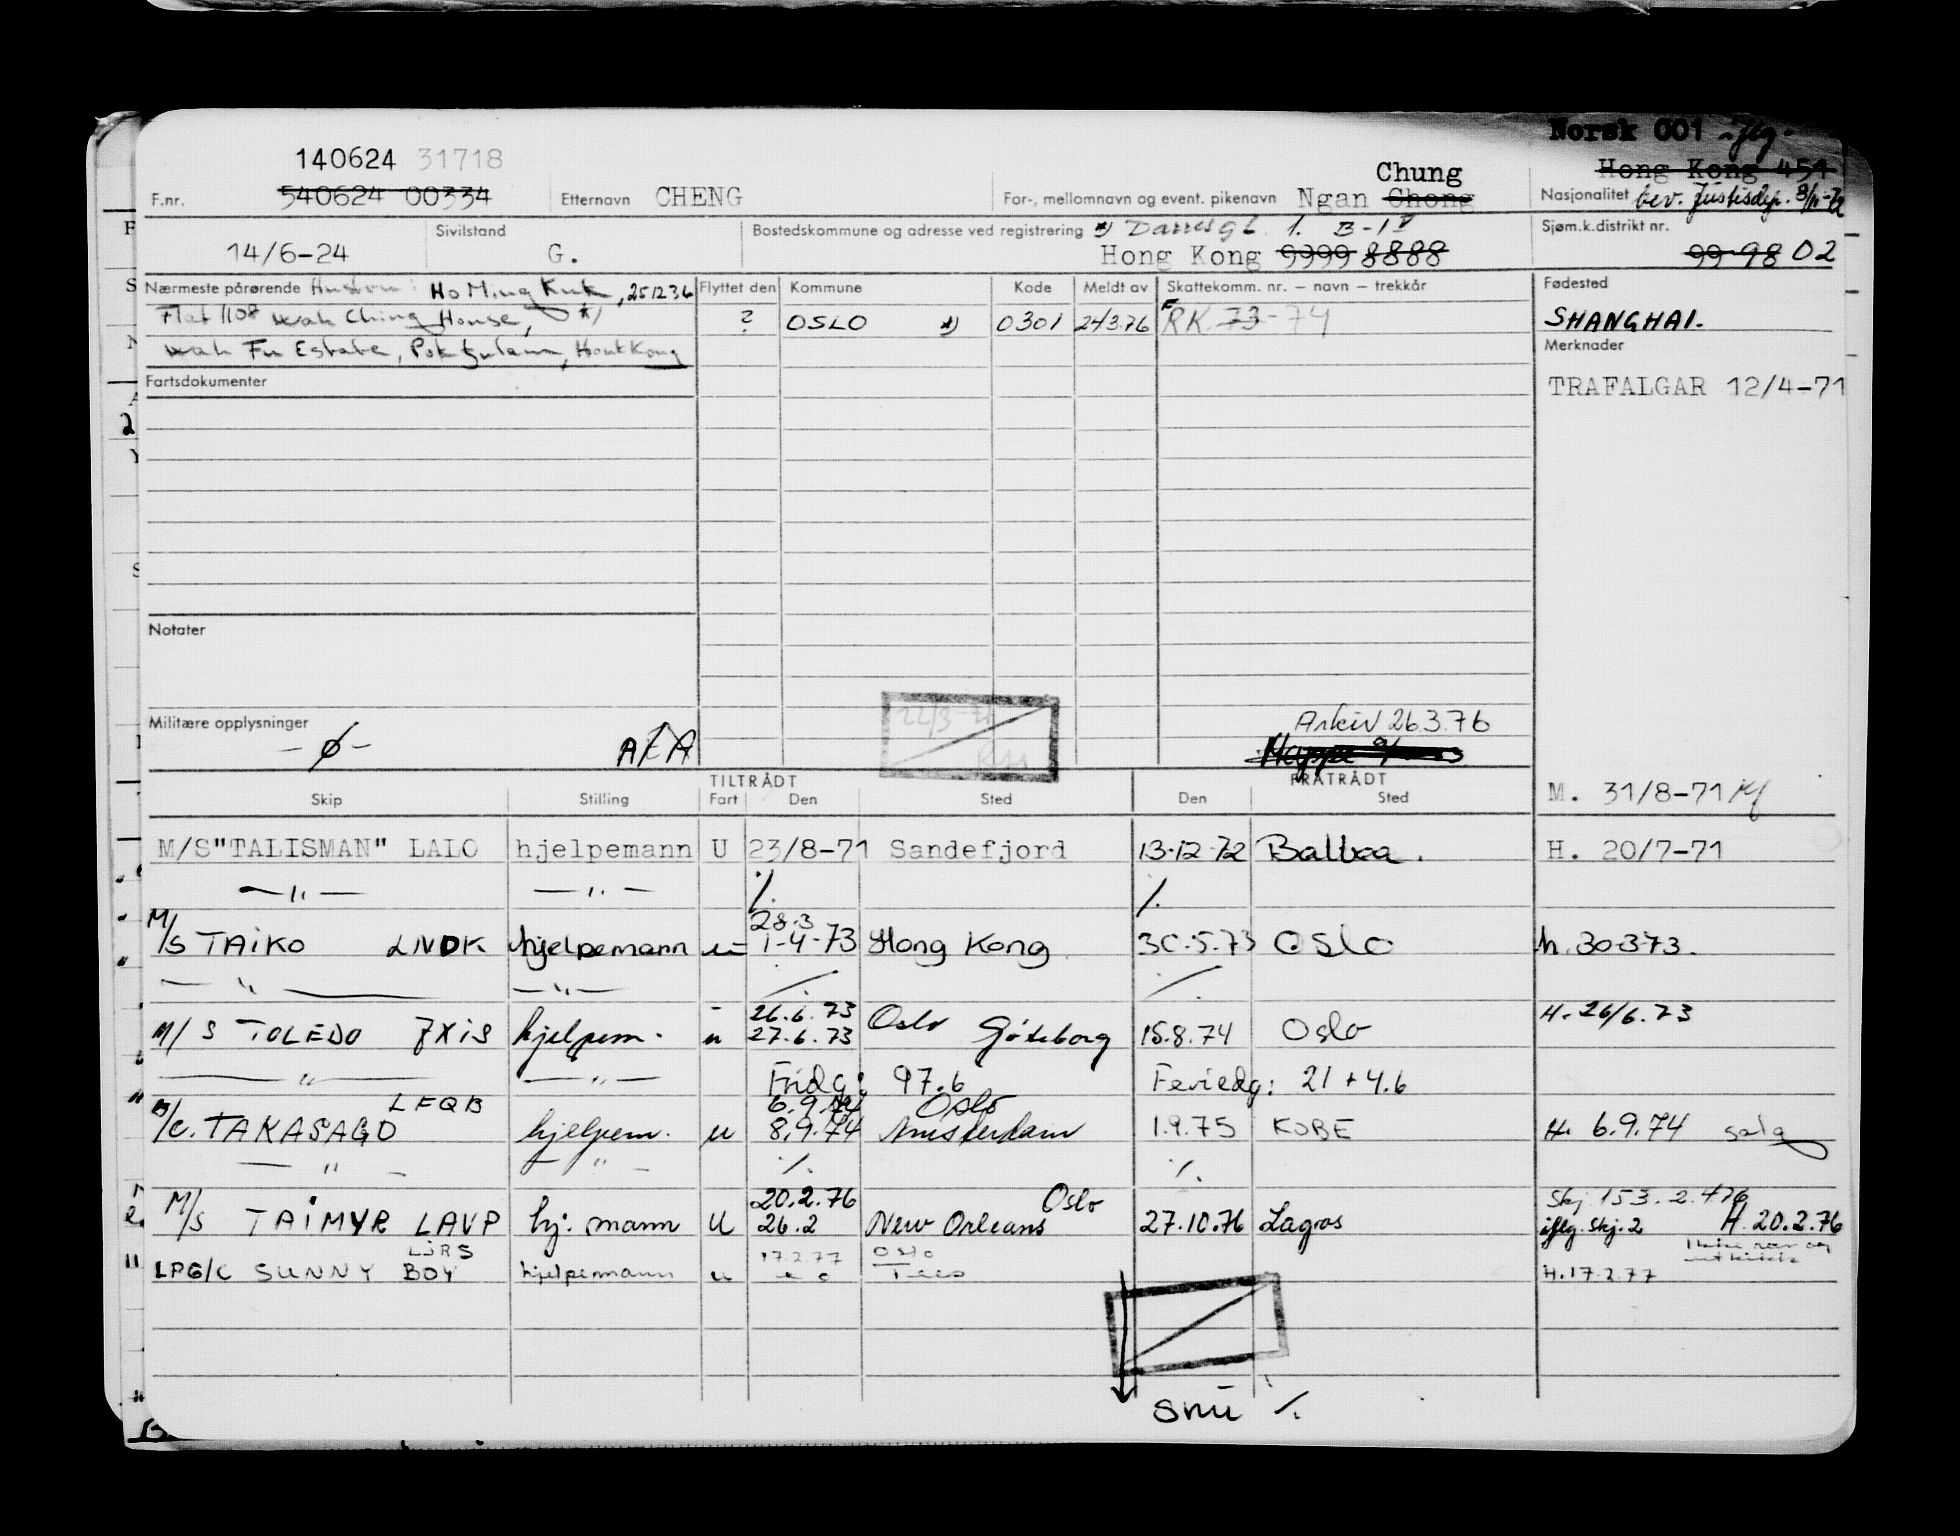 Norsk 001
140624 31718 Chung Hong Kong 451
F.nr. 540624 00334 Etternavn CHENG For-, mellomnavn og event. pikenavn Ngan Chong Nasjonalitet bev. Justisdep.
Sivilstand Bostedskommune og adresse ved registrering 1. B-IV Sjøm.k.distrikt nr.
14/6-24 G. Hong Kong 9999 8888 99 98 02
Nærmeste pårørende Hustru: Ho Ming Kuk, 251236 Flyttet den Kommune Kode Meldt av Skattekomm. nr. — navn — trekkår Fødested
Flat 1108 Wah Ching House, ? OSLO 0301 24/3.76 RK 73-74 SHANGHAI.
Wah Fu Estate, Hong Kong Merknader
Fartsdokumenter TRAFALGAR 12/4-71
Notater
Militære opplysninger Arkiv 26.3.76
-ø-
TILTRÅDT FRATRÅDT M. 31/8-71
Skip Stilling Fart Den Sted Den Sted
M/S"TALISMAN" LALO hjelpemann U 23/8-71 Sandefjord 13.12.72 Balboa. H. 20/7-71
— " — — " — ·/. ·/.
28.3
M/S TAIKO LNDK hjelpemann u 1-4-73 Hong Kong 30.5.73 OSLO h. 30-3-73.
— " — — " — ·/. ·/.
26.6.73 Oslo H. 26/6.73
M/S TOLEDO JXIS hjelpem. u 27.6.73 Göteborg 15.8.74 Oslo
— " — — " — Fridg: 97.6 Feriedg: 21 + 4.6
LFQB 6.9.74 Oslo
B/C. TAKASAGO hjelpem. u 8.9.74 Amsterdam 1.9.75 KOBE H. 6.9.74 salg
— " — — " — ·/. ·/.
20.2.76 Oslo Skj. 153.
M/S TAIMYR LAVP hj. mann U 26.2 New Orleans 27.10.76 Lagos iflg. Skj. 2 H. 20.2.76
17.2.77 Oslo
LPG/C SUNNY BOY hjelpemann u Tees H. 17.2.77
snu ·/.